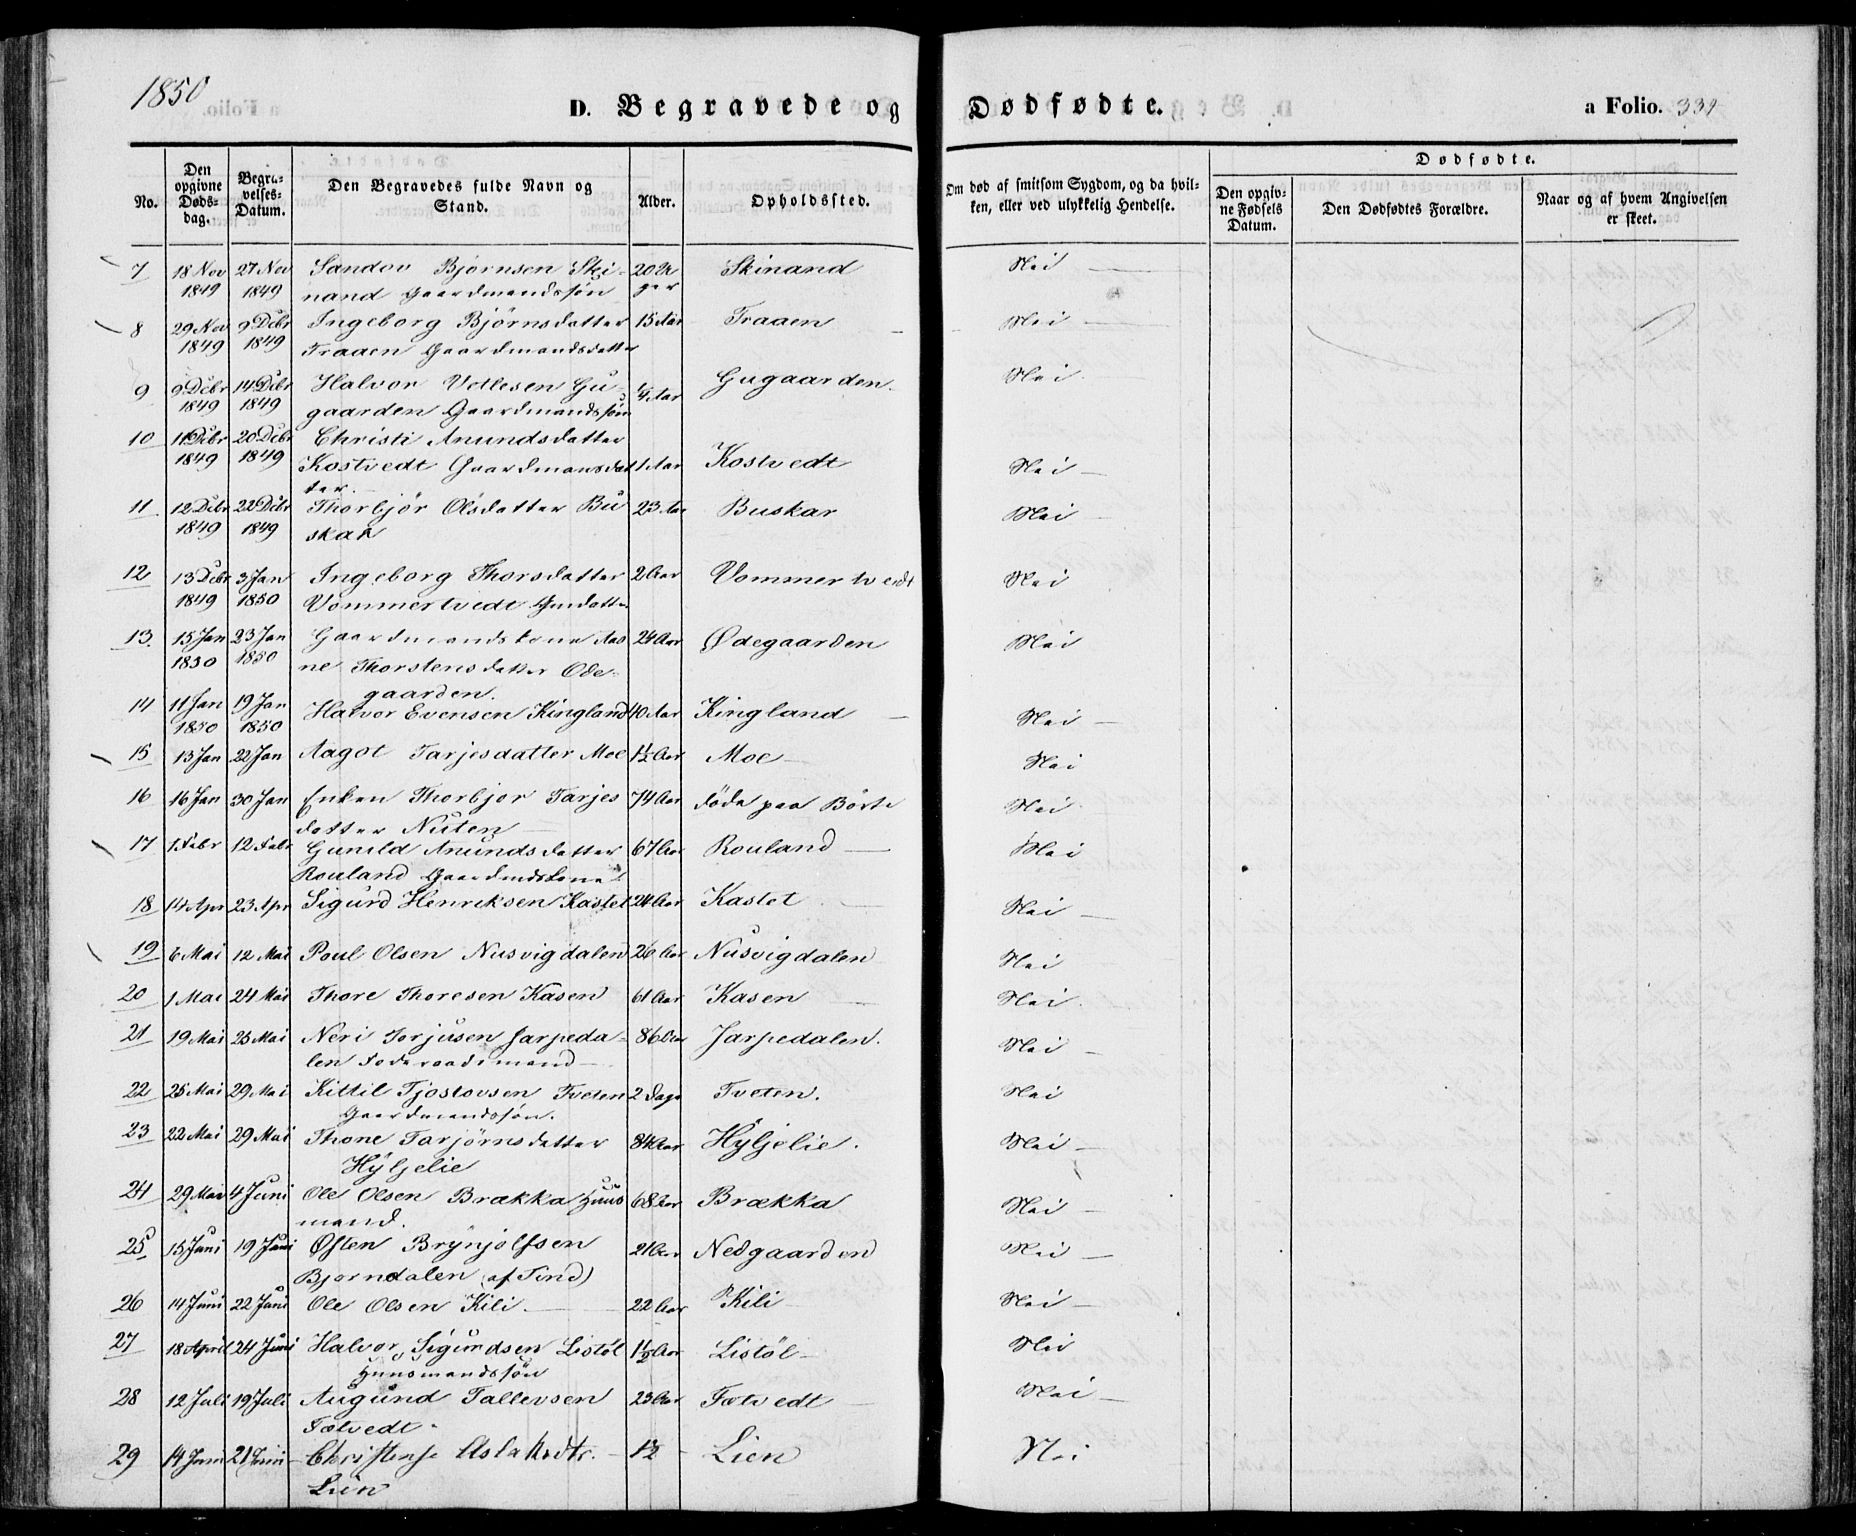 1850
D. Begravede og Dødfødte.
a Folio. 334
No.
Den opgivne Døds-dag.
Begra-velses-Datum.
Den Begravedes fulde Navn og Stand.
Alder.
Opholdssted.
Om død af smitsom Sygdom, og da hvil-ken, eller ved ulykkelig Hendelse.
Dødfødte.
Den opgiv-ne Fødsels Datum.
Den Dødfødtes Forældre.
Naar og af hvem Angivelsen er skeet.
7 18 Nov 27 Nov Sandov Bjørnsen Ski- 20 Uger Skinand Nei
1849 1849 nand Gaardmandssøn
8 29 Nov 9 Debr Ingeborg Bjørnsdatter 15 Aar Traaen Nei
1849 1849 Traaen Gaardmandsdatter
9 9 Debr 14 Debr Halvor Vetlesen Gu- 1/4 Aar Gugaarden. Nei
1849 1849 gaarden Gaardmandssøn
10 11 Debr 20 Debr Christi Anundsdatter
1849 1849 Kostvedt Gaardmansdat 1 Aar Kostvedt Nei
ter.
11 12 Debr 22 Debr Thorbjør Olsdatter Bu 23 Aar Buskar Nei
1849 1849 skar
12 13 Debr 3 Jan Ingeborg Thorsdatter 2 Aar Vommertvedt Nei
1849 1850 Vommertvedt Gmdatter
13. 15 Jan 23 Jan Gaardmandskone Aas 24 Aar Ødegaarden Nei
1850 1850 ne Thorstensdatter Ode-
gaarden.
14 11 Jan 19 Jan Halvor Evensen Kingland 40 Aar Kingland Nei
1850 1850
15 13 Jan 22 Jan Aagot Tarjesdatter Moe 1½ Aar Moe Nei
16 16 Jan 30 Jan Enken Thorbjor Tarjes 74 Aar døde paa Börte Nei
datter Nuten
17 1 Febr 12 Febr Gunild Anundsdatter 67 Aar Rouland Nei
Rouland Gaardmdskone
18 14 Apr 23 Apr Sigurd Henriksen Kastet 24 Aar Kastet Nei
19 6 Mai 12 Mai Poul Olsen Nusvigdalen 26 Aar Nusvigdalen Nei
20 1 Mai 24 Mai Thore Thoresen Kasen 61 Aar Kasen Nei
21 19 Mai 25 Mai Neri Torjusen Jarpeda- 86 Aar Jarpedalen. Nei
len Foderaadsmand
22 25 Mai 29 Mai Kittil Tjostovsen Tveten 2 Dage Tveten. Nei
Gaardmandssøn.
23 22 Mai 29 Mai Thone Tarjørnsdatter 84 Aar Hyljelie. Nei
Hyljelie
24 29 Mai 4 Juni Ole Olsen Brækka Huus 68 Aar Brækka Nei
mand.
25 15 Juni 19 Juni Østen Brynjolfsen 21 Aar Nedgaarden Nei
Bjorndalen (af Tind)
26 14 Juni 22 Juni Ole Olsen Kili. 22 Aar Kili Nei
27 18 April 24 Juni Halvor Sigurdsen Listøl 1½ Aar Listøl Nei
Huusmandssøn
28 12 Juli 19 Juli Augund Tallevsen 23 Aar Fætvedt Nei
Fætvedt
29 14 Juni 21 Juni Christense Aslaksdtr. 1½ Lien Nei
Lien